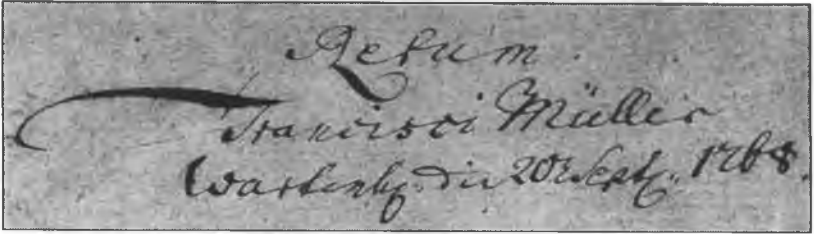 Francisci Müller
Wartenbg. die 20 Sept. 1768.